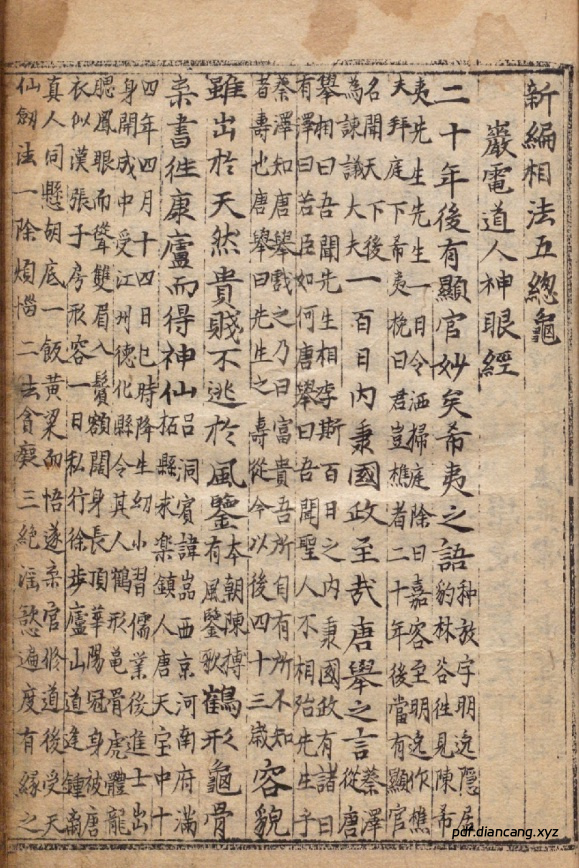 新編相法五總龜
巖電道人神眼經
二十年後有顯官妙矣希夷之語种放字明逸隱居
豹林谷徃見陳希
夷先生先生一日令洒掃庭除曰嘉客至明逸作樵
夫拜庭下希夷挽曰君豈樵者二十年後當有顯官
名聞天下後
為諫議大夫一百日內秉國政至哉唐舉之言蔡澤
從唐
舉相曰吾聞先生相李斯百日之內秉國政有諸曰
有澤曰若臣如何唐舉曰吾聞聖人不相殆先生乎
蔡澤知唐舉戲之乃曰富貴吾所自有所不知
者壽也唐舉曰先生之壽從今以後四十三歲容貌
雖出於天然貴賤不逃於風鑒本朝陳摶
有風鑒歌鶴形龜骨
棄書徃康廬而得神仙吕洞賓諱嵓西京河南府滿
拓縣求樂鎮人唐天宝中十
四年四月十四日巳時降生幼小習儒業後進士出
身開成中受江州德化縣令其人鶴形龜骨虎體龍
腮鳳眼而聳雙眉入鬢額闊身長頂華陽冠身被唐
衣似漢張子房形容一日私行徐步廬山道逢鍾离
真人同懸胡底一飯黃粱而悟遂棄官修道後受天
仙劍法一除煩惱二去貪嗔三絶滛慾遍度有緣之
pdf.diancang.xyz